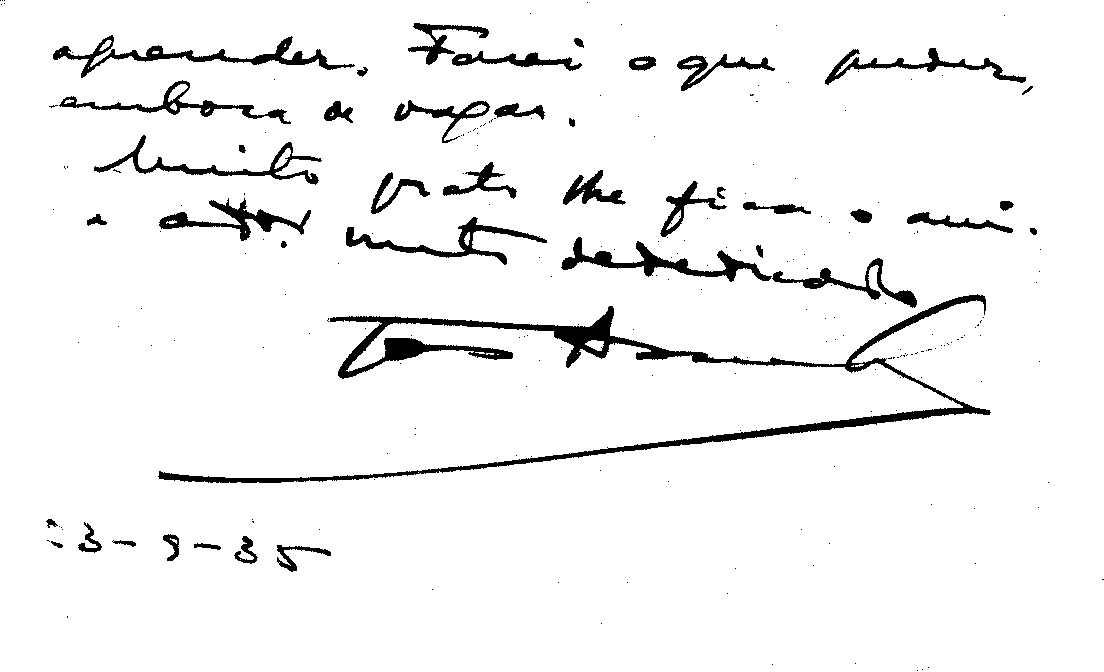 aprender. Farei o que puder,
embora de vagar.
Muito grato lhe fica o ami.
e muito dedicado
3-9-35